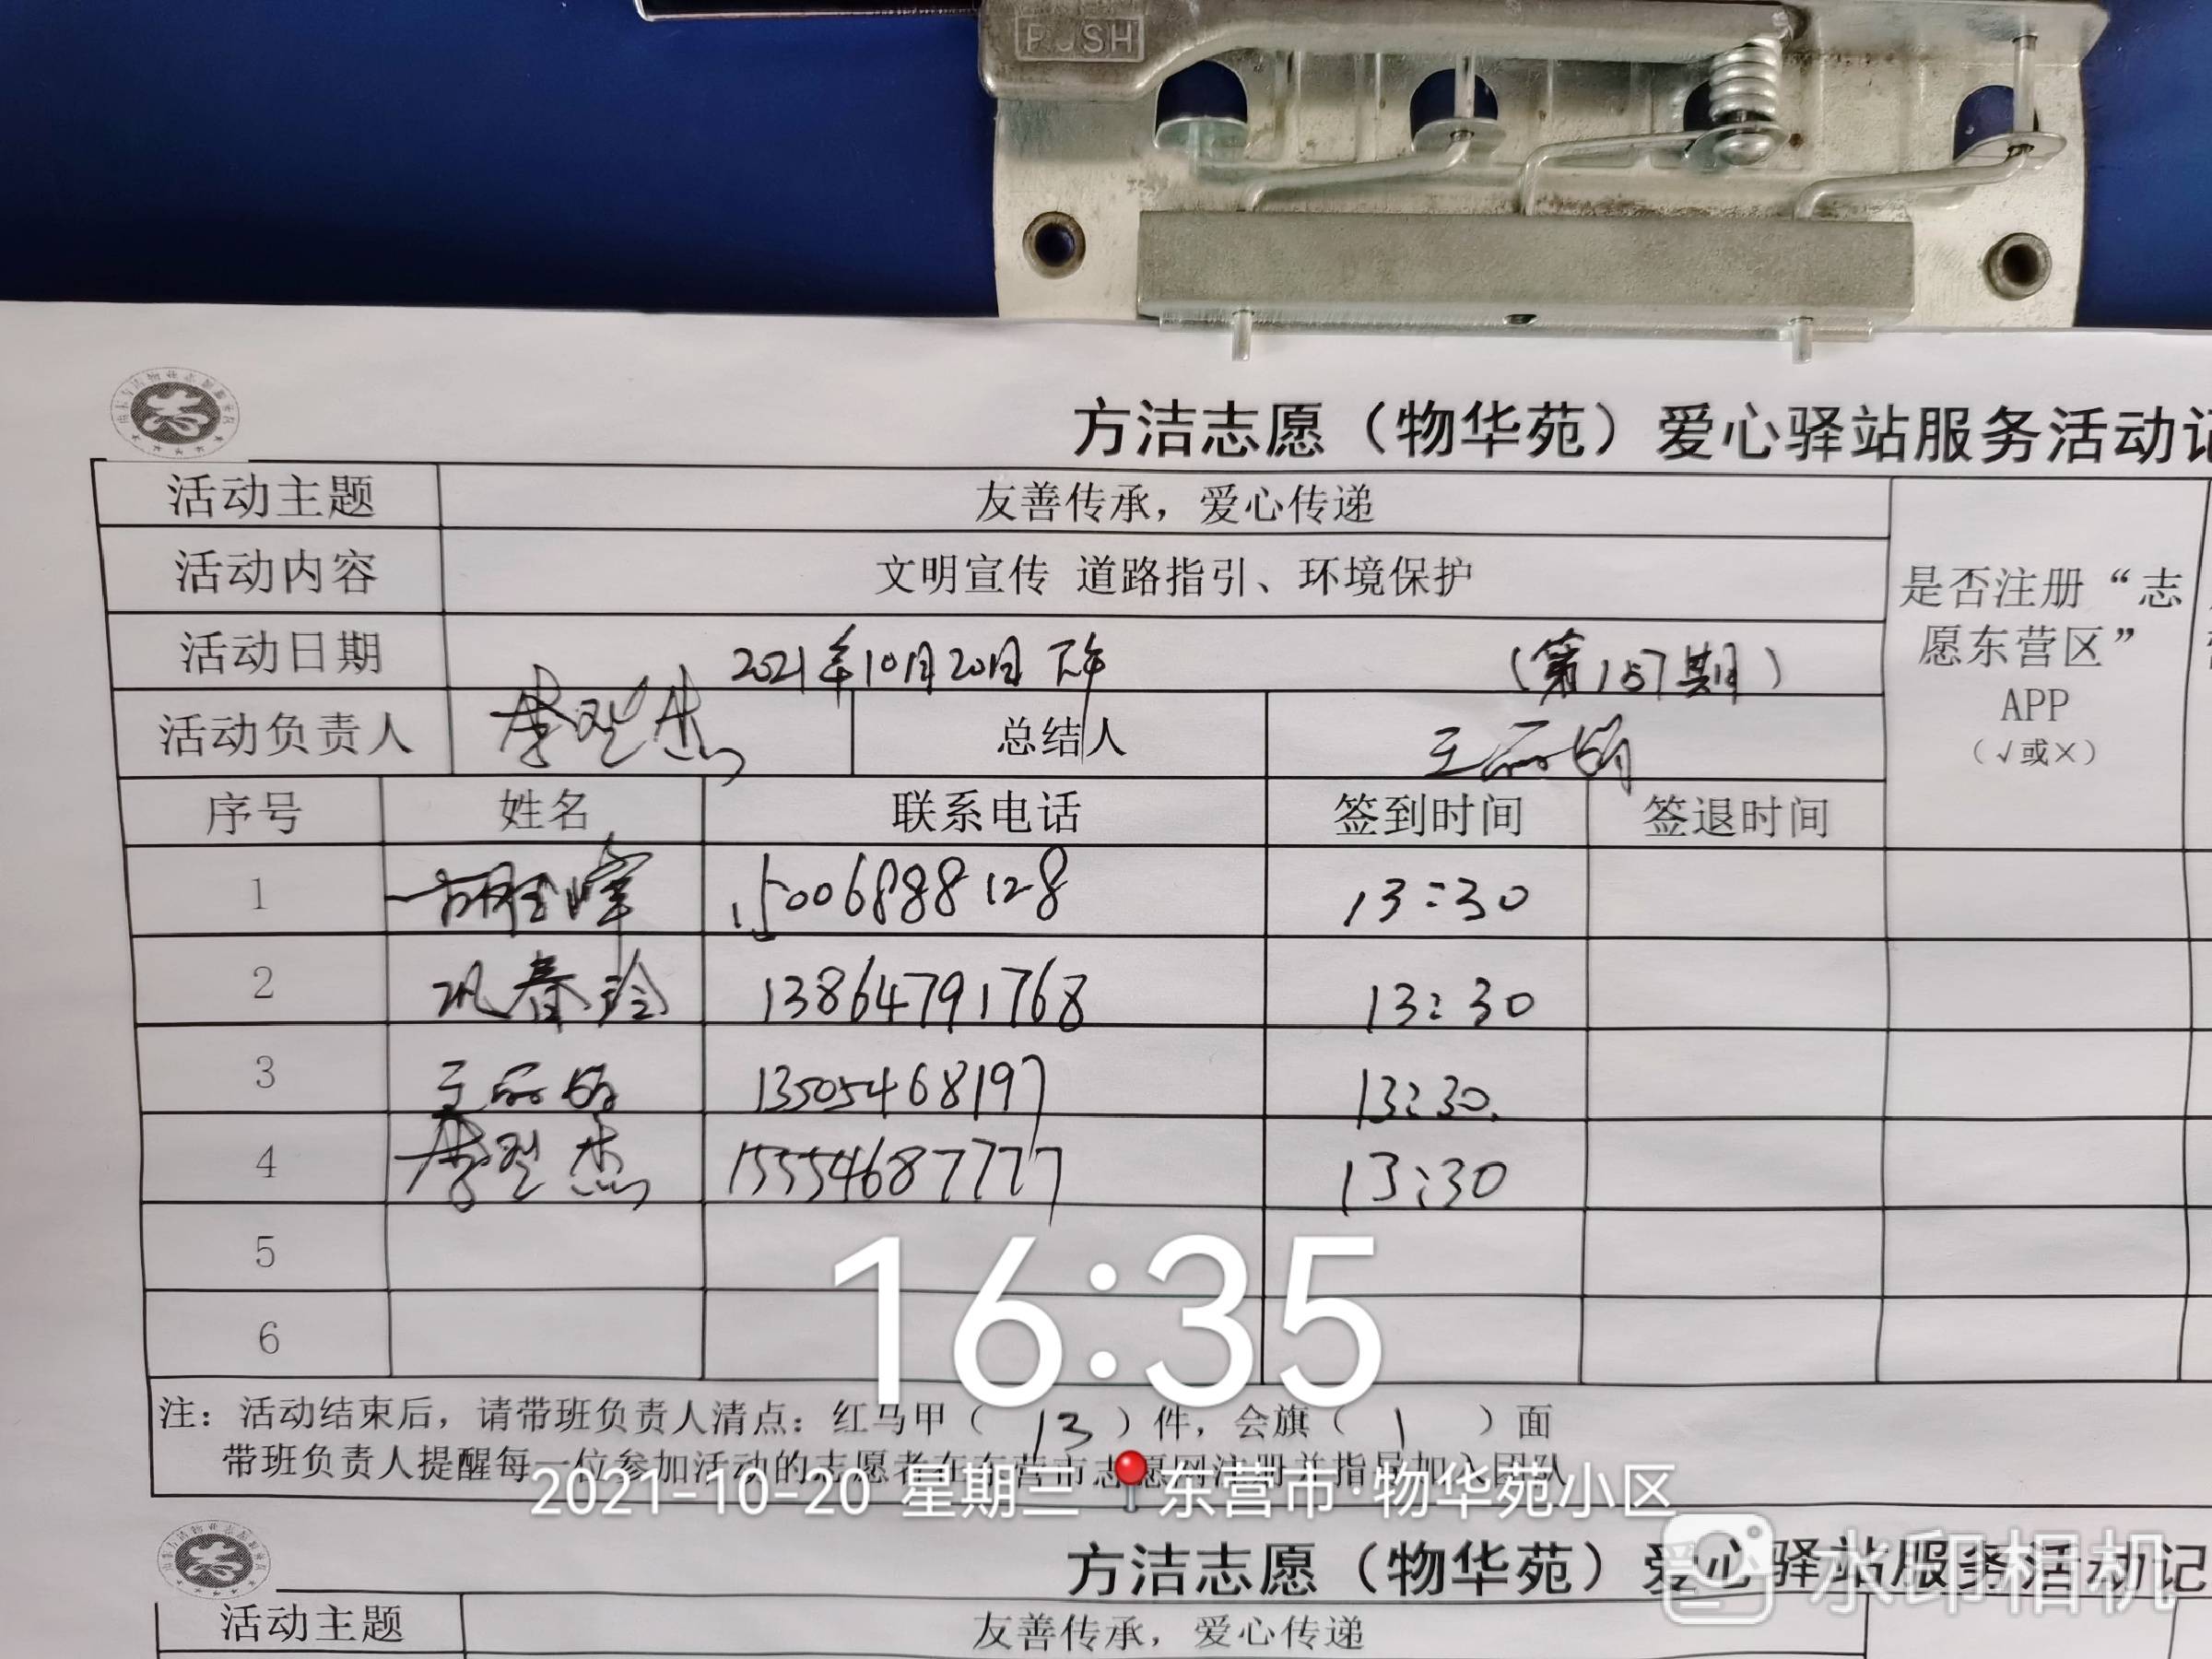 PUSH
方洁志愿（物华苑）爱心驿站服务活动记
活动主题 友善传承，爱心传递
活动内容 文明宣传 道路指引、环境保护
是否注册“志愿东营区”APP（√或×）
活动日期 2021年10月20日 下午 （第157期）
活动负责人 总结人 王
序号 姓名 联系电话 签到时间 签退时间
1 15006888128 13:30
2 巩春玲 13864791768 13:30
3 王 13505468197 13:30.
4 杰 15554687777 13:30
5
6
16:35
注：活动结束后，请带班负责人清点：红马甲（ 13 ）件，会旗（ 1 ）面
带班负责人提醒每一位参加活动的志愿者在东营市志愿网注册并指导加入团队
2021-10-20 星期三 东营市·物华苑小区
水印相机
方洁志愿（物华苑）爱心驿站服务活动记
活动主题 友善传承，爱心传递